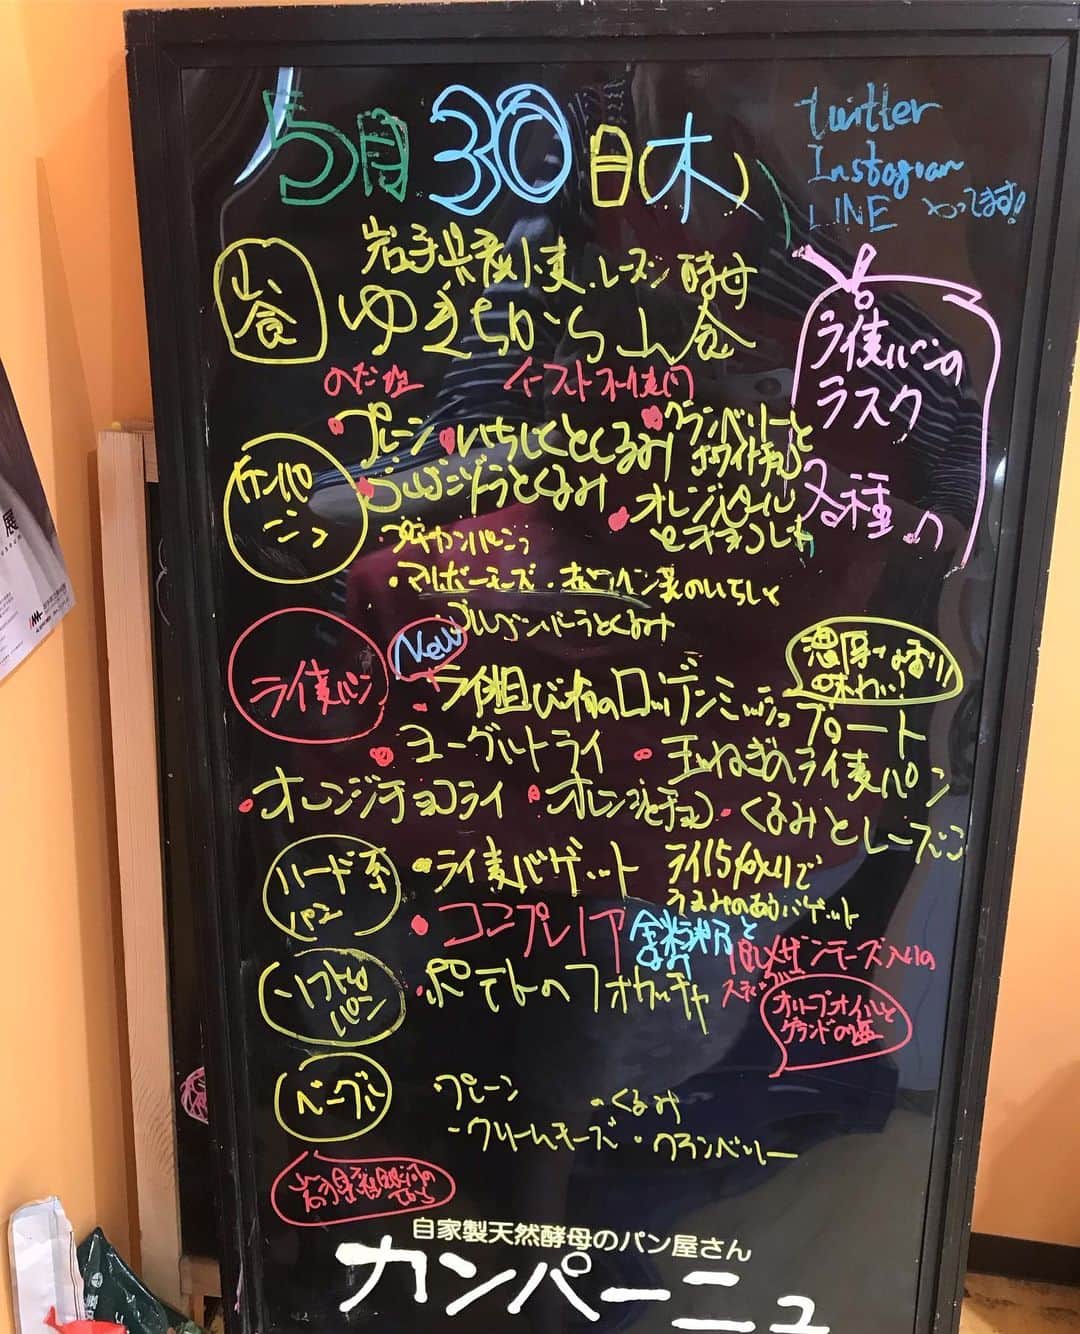 5月30日(木)
twitter
Instagram
LINE やってます!
山食
岩手県産小麦、レーズン酵母
ゆきちから山食
のだ塩 イースト不使用
ライ麦パンの
ラスク
各種
カンパーニュ
・プレーン ・いちじくとくるみ ・クランベリーと
ホワイトチョコ
・ゴルゴンゾーラとくるみ ・オレンジピール
プチカンパーニュ
・マルボーチーズ ・赤ワイン煮のいちじく
ゴルゴンゾーラとくるみ
ライ麦パン
New
濃厚な香り
味わい!
ライ粗びき粉のロッゲンミッシュブロート
・ヨーグルトライ ・玉ねぎのライ麦パン
・オレンジチョコライ ・オレンジとチョコ ・くるみとレーズン
ハード系
パン
・ライ麦バゲット ライ15%入りで
うまみのあるバゲット
・コンプレノア 全粒粉と
ソフトな
パン
・ポテトのフォカッチャ
オリーブオイルと
ゲランドの塩
ベーグル
・プレーン ・くるみ
・クリームチーズ ・クランベリー
岩手県産銀河の
ちから
自家製天然酵母のパン屋さん
カンパーニュ
展